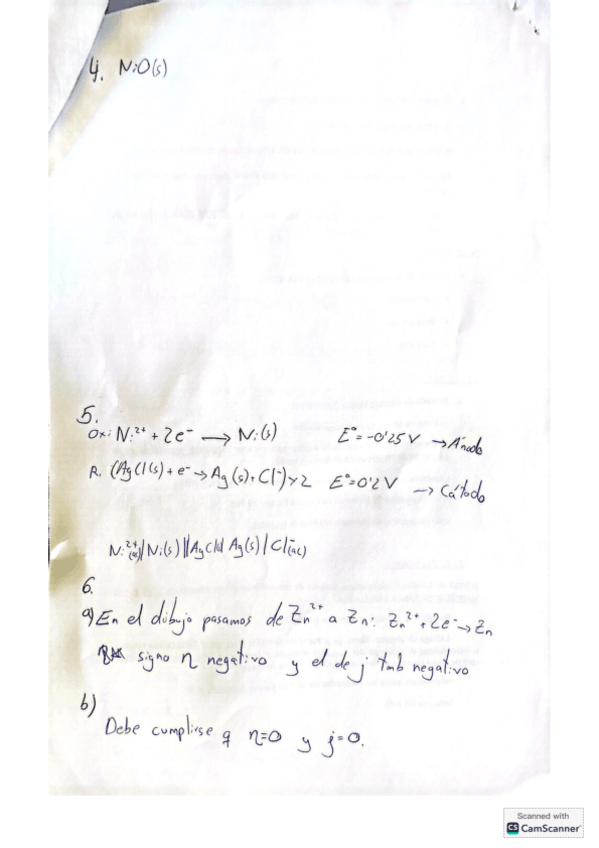 4. NiO(s)
5.
Oxi Ni²⁺ + 2e⁻ → Ni(s) E° = -0'25 V → Ánodo
R. (AgCl(s) + e⁻ → Ag(s) + Cl⁻) x 2 E° = 0'2 V → Cátodo
Ni²⁺(ac) | Ni(s) || AgCl(s) Ag(s) | Cl⁻(ac)
6.
a) En el dibujo pasamos de Zn²⁺ a Zn: Zn²⁺ + 2e⁻ → Zn
signo η negativo y el de j tmb negativo
b)
Debe cumplirse q η=0 y j=0.
Scanned with
CS CamScanner